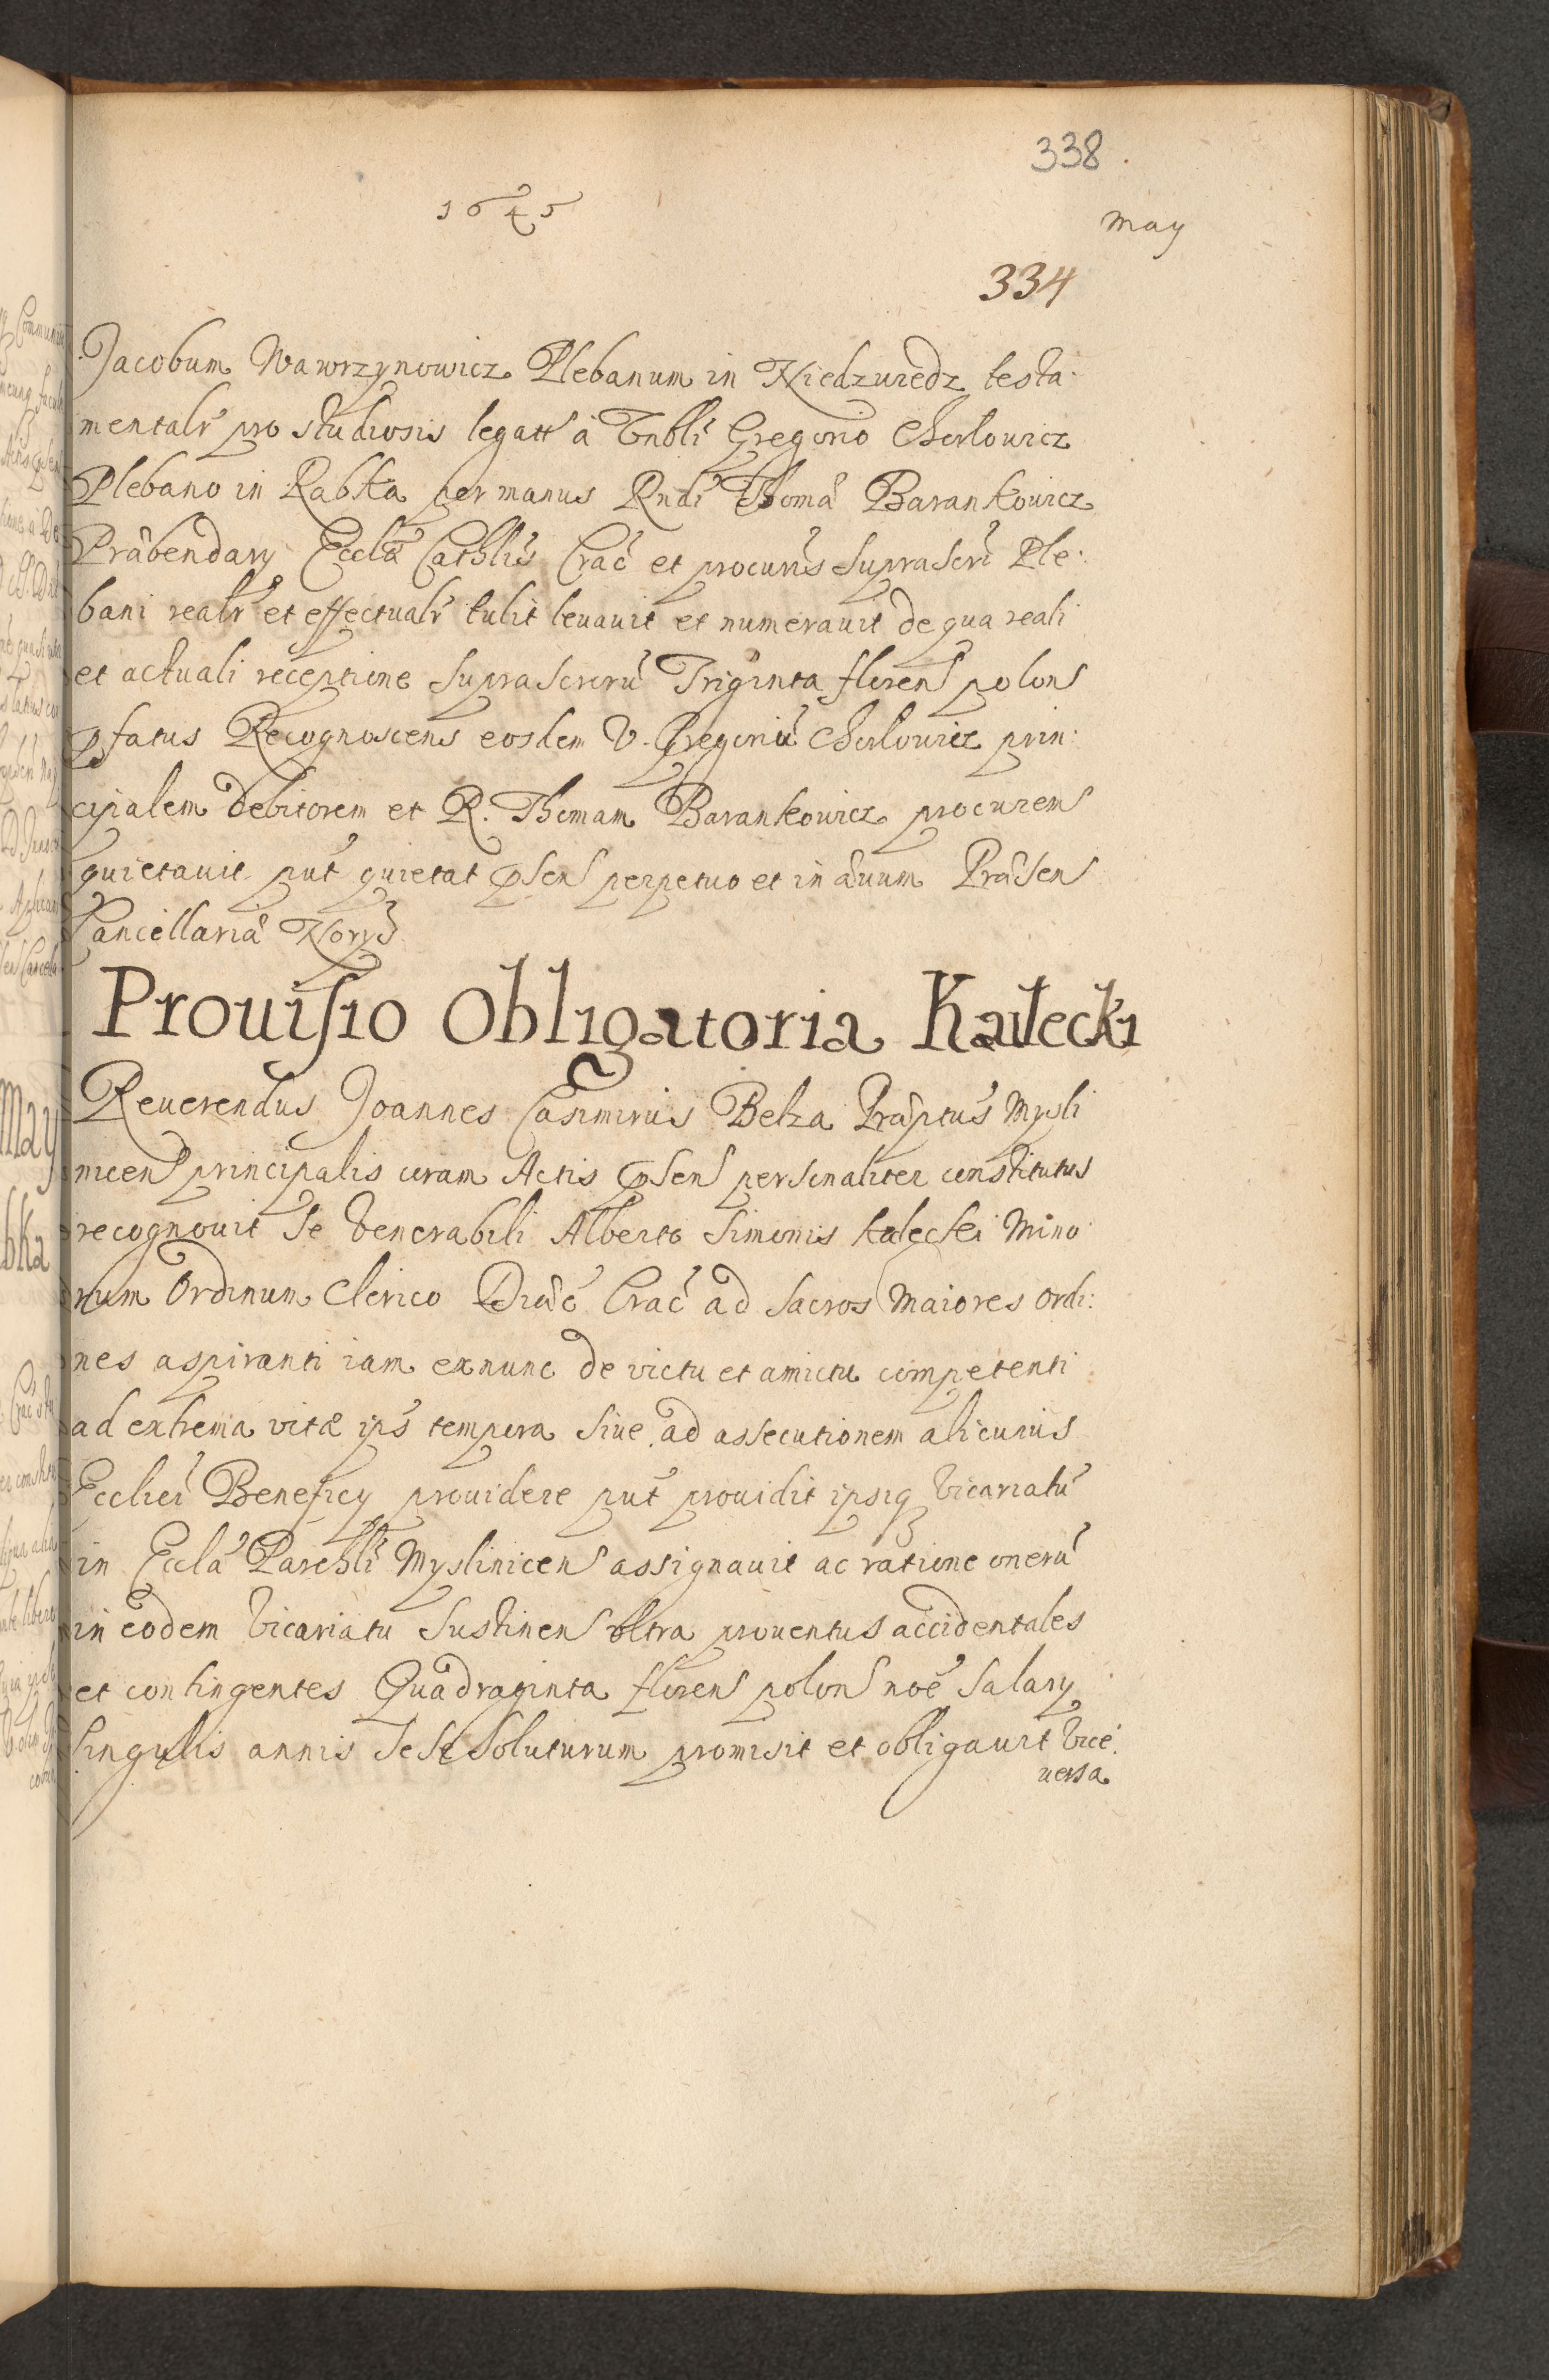 338.
1645
May
334
Jacobum Wawrzynowicz Plebanum in Niedzwiedz testa:
mentalr pro studiosis legatt à Vnbli Gregorio Chorlowicz
Plebano in Rabka per manus Rndi Thomâ Barankowicz
Prâbendary Ecclâ Cathlis Crac et procuris suprascri Ple:
bani realr et effectualr tulit leuauit et numerauit de qua reali
et actuali receptione suprascriru Triginta floren polon
pfatus Recognoscens eosdem V. Gregoriu Chorlowicz prin:
cipalem debitorem et R. Thomam Barankowicz procuren
quietauit put quietat psen perpetuo et in âuum Prâsen
Cancellariâ Norys
Prouisio Obligatoria Kałecki
Reuerendus Joannes Casimirus Bełza Prâptus Mysli
nicen principalis coram Actis psen personaliter constitutus
recognouit se Venerabili Alberto Simonis Kałecki Mino
rum Ordinum Clerico Diâc Crac ad sacros Maiores Ordi:
nes aspiranti iam exnunc de victu et amictu competenti
ad extrema vitæ ips tempora siue ad assecutionem alicuius
Ecclici Beneficy prouidere put prouidit ipsiq Vicariatu
in Ecclâ Parchli Myslinicen assignauit ac ratione oneru
in eodem Vicariatu sustinen vltra prouentus accidentales
et contingentes Quadraginta floren polon noe Salary
singulis annis sese soluturum promisit et obligauit Vice
uersa